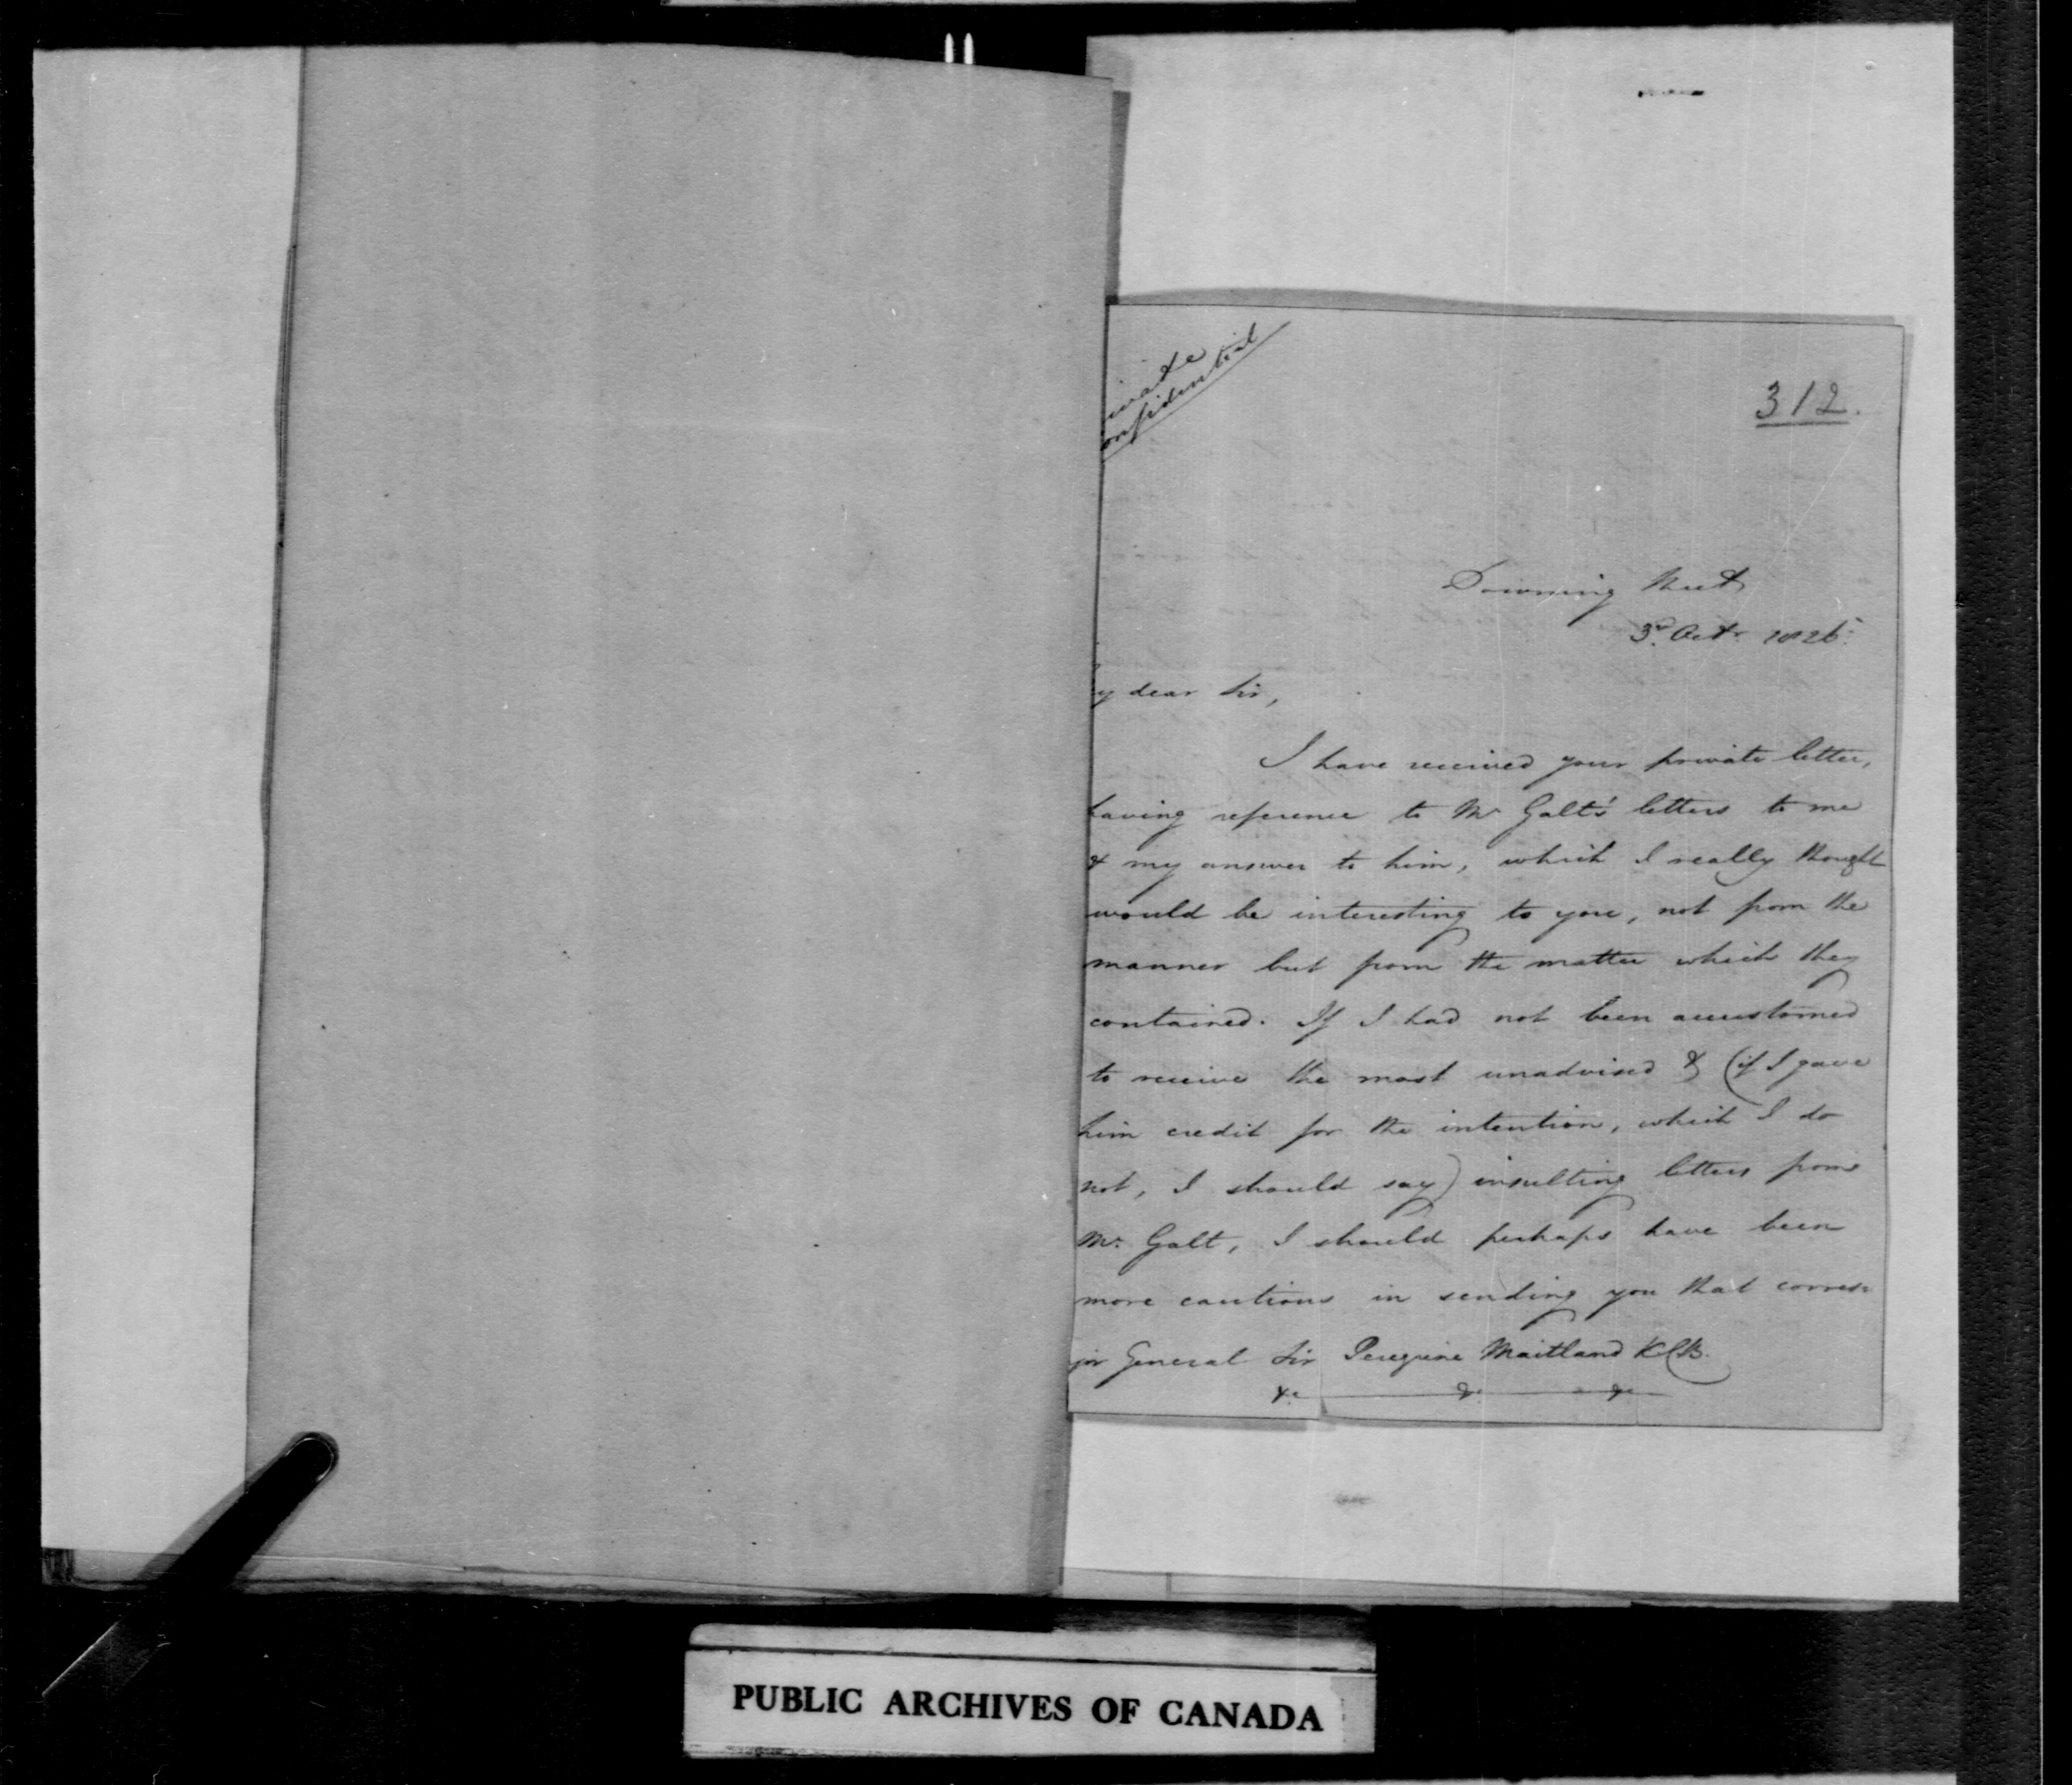 ivate
onfidential
312.
Downing Street
3rd Octr. 1826.
y dear Sir,
I have received your private letter,
having reference to Mr Galt's letters to me
& my answer to him, which I really thought
would be interesting to you, not from the
manner but from the matter which they
contained. If I had not been accustomed
to receive the most unadvised & (if I gave
him credit for the intention, which I do
not, I should say) insulting letters from
Mr. Galt, I should perhaps have been
more cautious in sending you that corres
jor General Sir Peregrine Maitland KCB.
&c &c &c
PUBLIC ARCHIVES OF CANADA